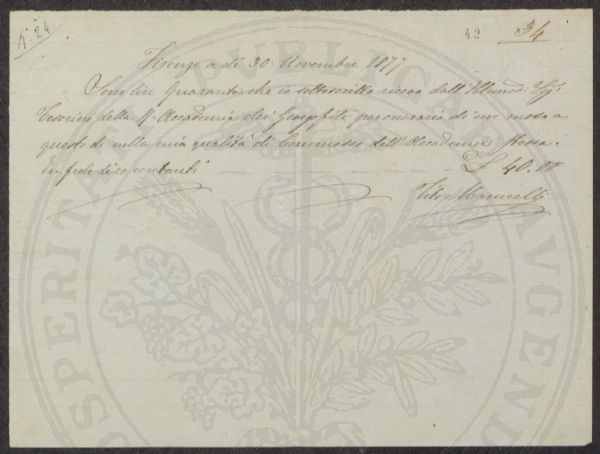 N.° 24
42
34
Firenze a dì 30. Novembre 1877
Sono lire Quaranta che io sottoscritto ricevo dall' Illmo: Sig:
Tesoriere della R. Accademia dei Georgofili per onorario di un mese a
questo dì nella mia qualità di Commesso dell' Accademia stessa.
In fede di contanti £ 40.00
Tito Marucelli
PROSPERITATI PUBLICAE AUGENDAE